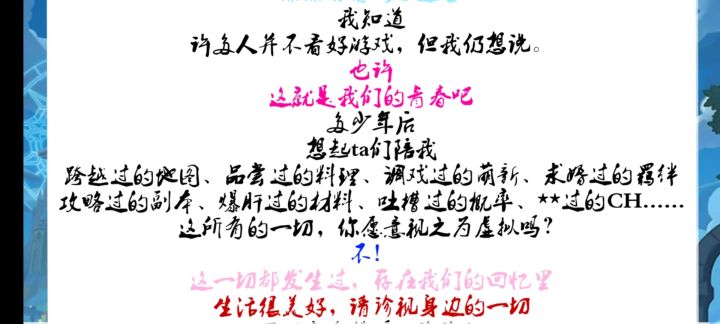 我知道
许多人并不看好游戏，但我仍想说。
也许
这就是我们的青春吧
多少年后
想起ta们陪我
跨越过的地图、品尝过的料理、调戏过的萌新、求婚过的羁绊
攻略过的副本、爆肝过的材料、吐槽过的概率、**过的CH……
这所有的一切，你愿意视之为虚拟吗？
不！
这一切都发生过，存在我们的回忆里
生活很美好，请诊视身边的一切